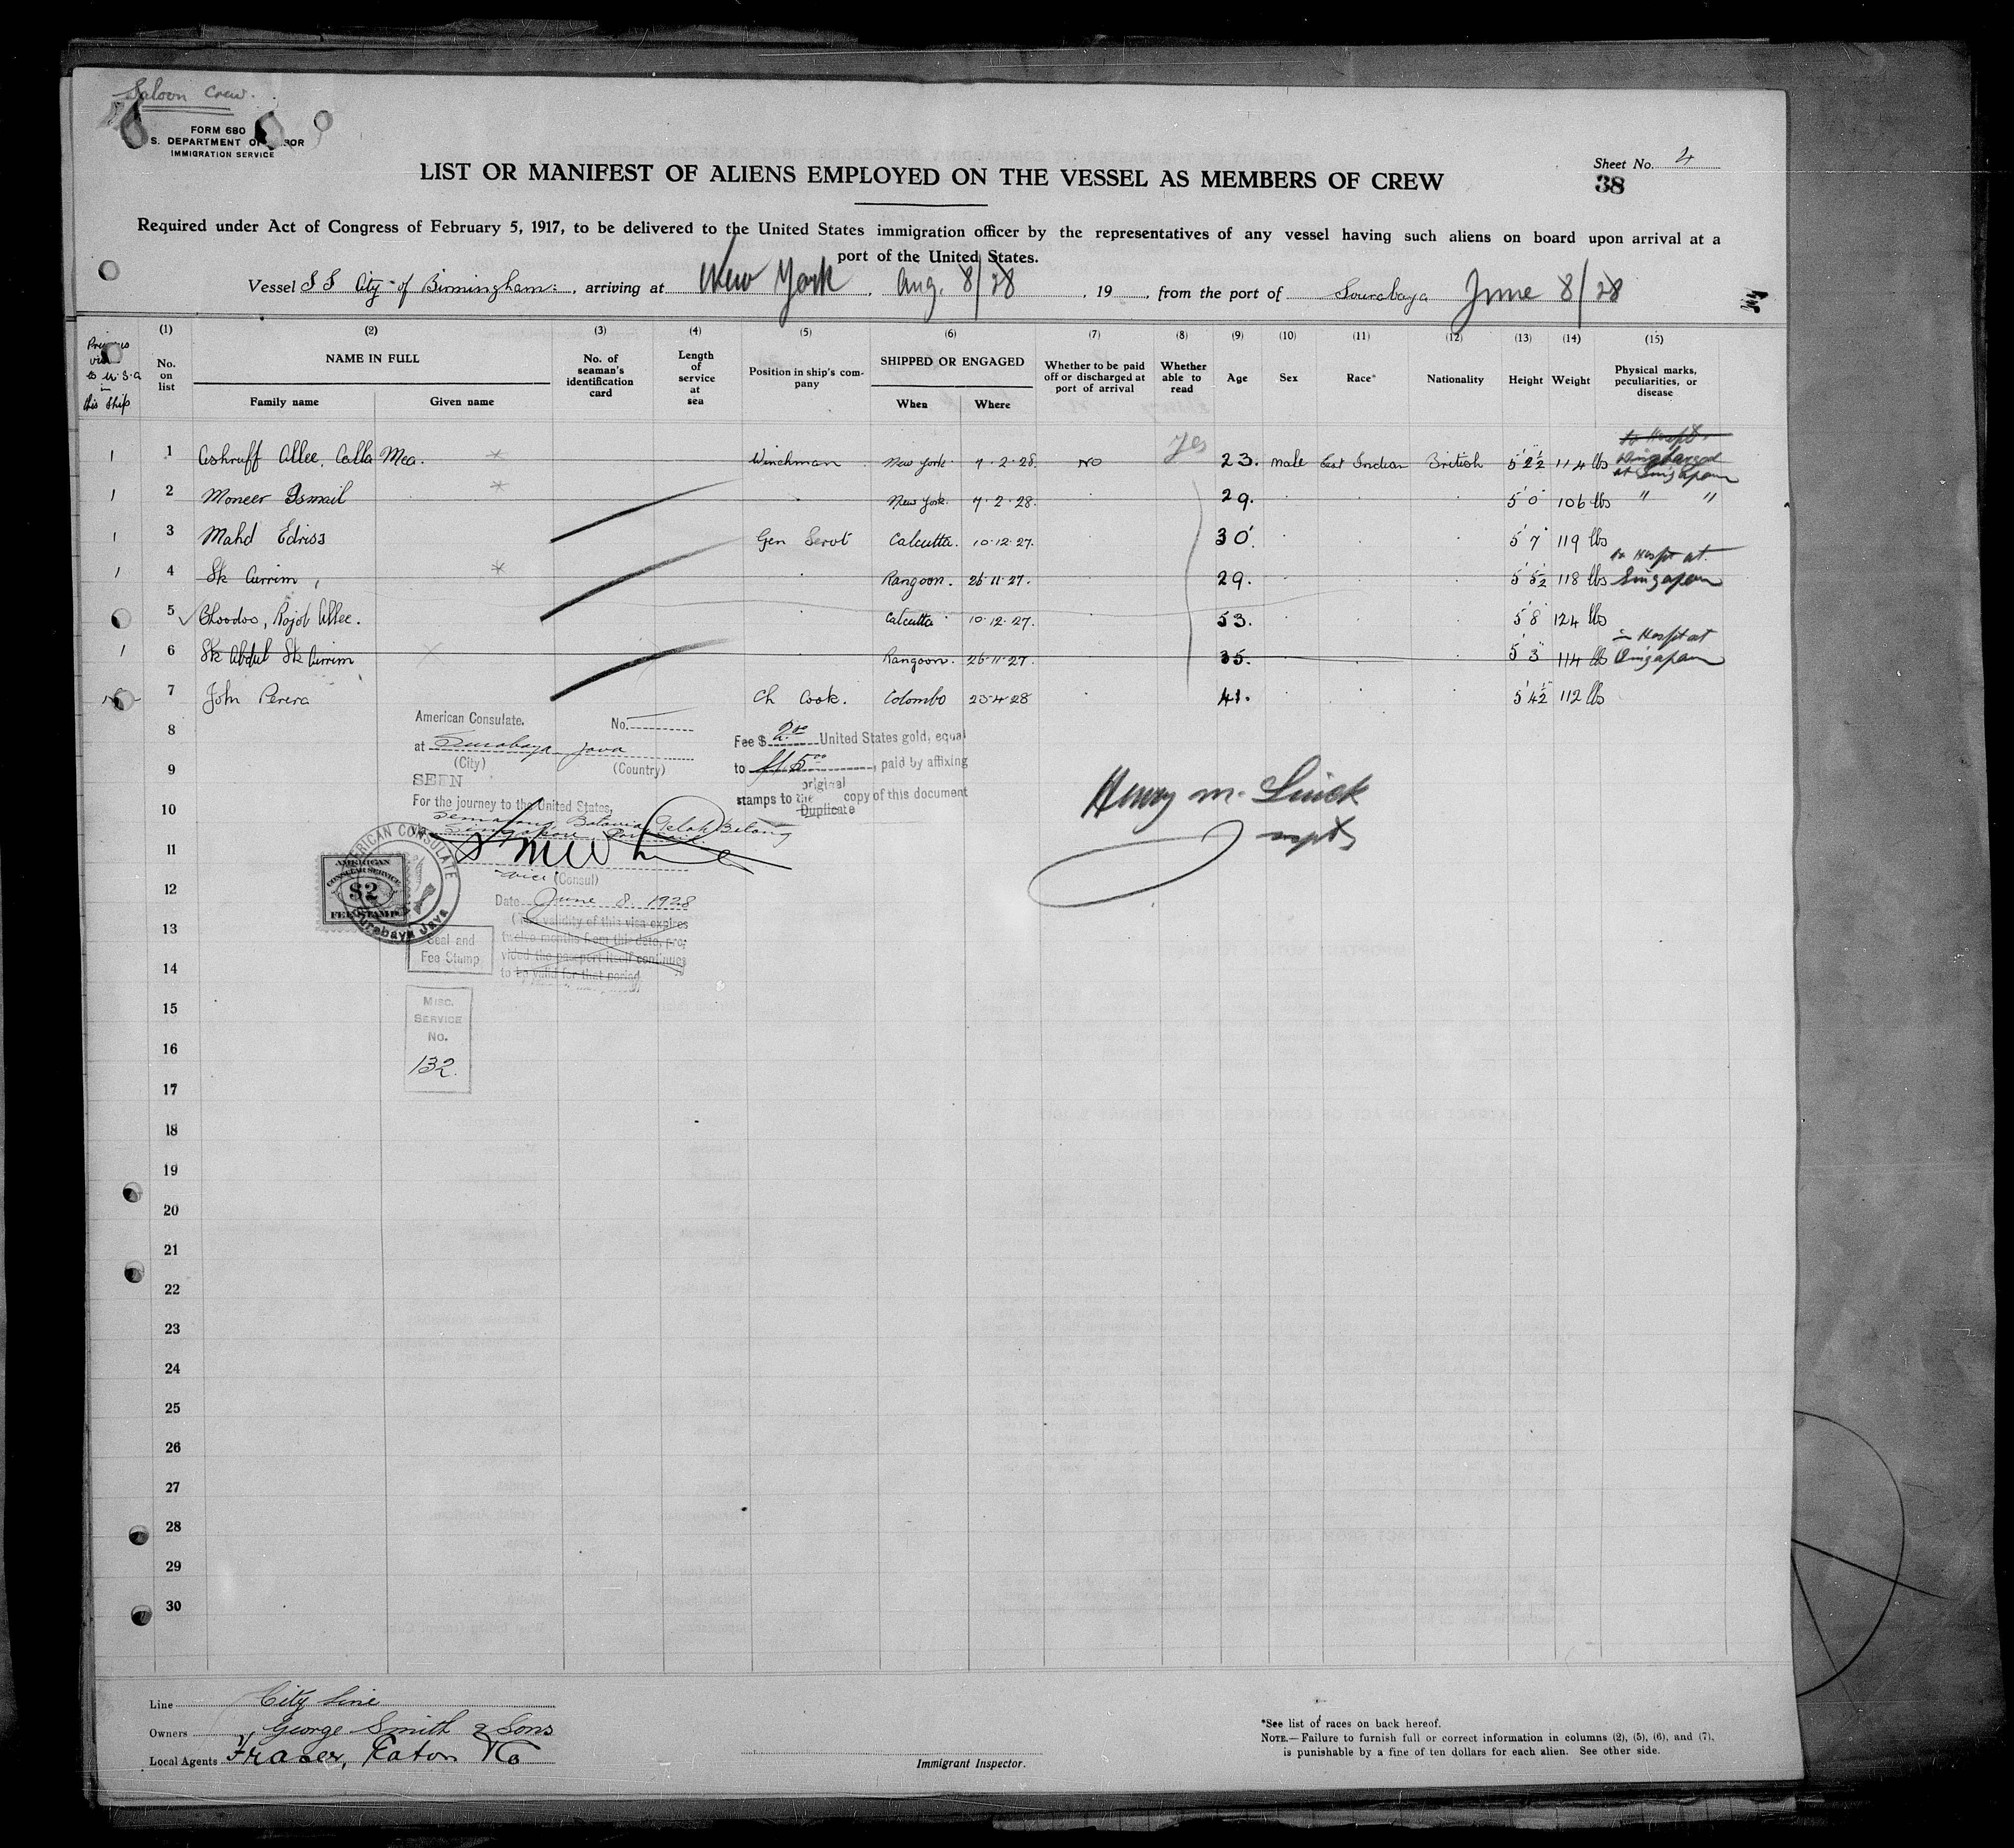 Saloon Crew.
FORM 680
S. DEPARTMENT OF BOR
IMMIGRATION SERVICE
Sheet No. 4
38
LIST OR MANIFEST OF ALIENS EMPLOYED ON THE VESSEL AS MEMBERS OF CREW
Required under Act of Congress of February 5, 1917, to be delivered to the United States immigration officer by the representatives of any vessel having such aliens on board upon arrival at a
port of the United States.
Vessel S S City of Birmingham, arriving at New York, Aug. 8/28, 19, from the port of Sourabaya June 8/28
Previous visit to U.S.A in this ship
(1) No. on list
(2) NAME IN FULL Family name Given name
(3) No. of seaman's identification card
(4) Length of service at sea
(5) Position in ship's company
(6) SHIPPED OR ENGAGED When Where
(7) Whether to be paid off or discharged at port of arrival
(8) Whether able to read
(9) Age
(10) Sex
(11) Race*
(12) Nationality
(13) Height
(14) Weight
(15) Physical marks, peculiarities, or disease
to Hospt.
1 1 Ashruff Allee, Calla Mea. Winchman New York 7.2.28. No Yes 23. male East Indian British 5' 2½" 114 lbs discharged at Singapore
1 2 Moneer Ismail New York. 7.2.28. 29. 5' 0" 106 lbs " "
1 3 Mahd Edriss Gen Servt Calcutta. 10.12.27. 30. 5' 7" 119 lbs
1 4 Sk Currim, Rangoon. 26.11.27. 29. 5' 5½ 118 lbs to Hospt at Singapore
5 Bhoodoo, Rojob Allee. Calcutta 10.12.27. 53. 5' 8" 124 lbs
1 6 Sk Abdul Sk Currim Rangoon. 26.11.27. 35. 5' 3" 114 lbs in Hospt at Singapore
7 John Perera Ch Cook. Colombo 23.4.28 41. 5' 4½" 112 lbs
8
9
10
11
12
13
14
15
16
17
18
19
20
21
22
23
24
25
26
27
28
29
30
American Consulate. No.
at Surabaya Java
(City) (Country)
SEEN
For the journey to the United States,
Semarang Batavia Telok Betong
Singapore
vice (Consul)
Date June 8. 1928
(The validity of this visa expires
twelve months from this date, pro-
vided the passport itself continues
to be valid for that period
Fee $ 2.00 United States gold, equal
to fl. 5.00, paid by affixing
original
stamps to the copy of this document
Duplicate
AMERICAN CONSULATE
Surabaya Java
AMERICAN
CONSULAR SERVICE
$2
FEE STAMP
Seal and
Fee Stamp
MISC.
SERVICE
No.
132.
Henry M. Linek
Inspt
Line City Line
Owners George Smith & Sons
Local Agents Fraser, Eaton & Co
Immigrant Inspector.
*See list of races on back hereof.
NOTE.—Failure to furnish full or correct information in columns (2), (5), (6), and (7),
is punishable by a fine of ten dollars for each alien. See other side.